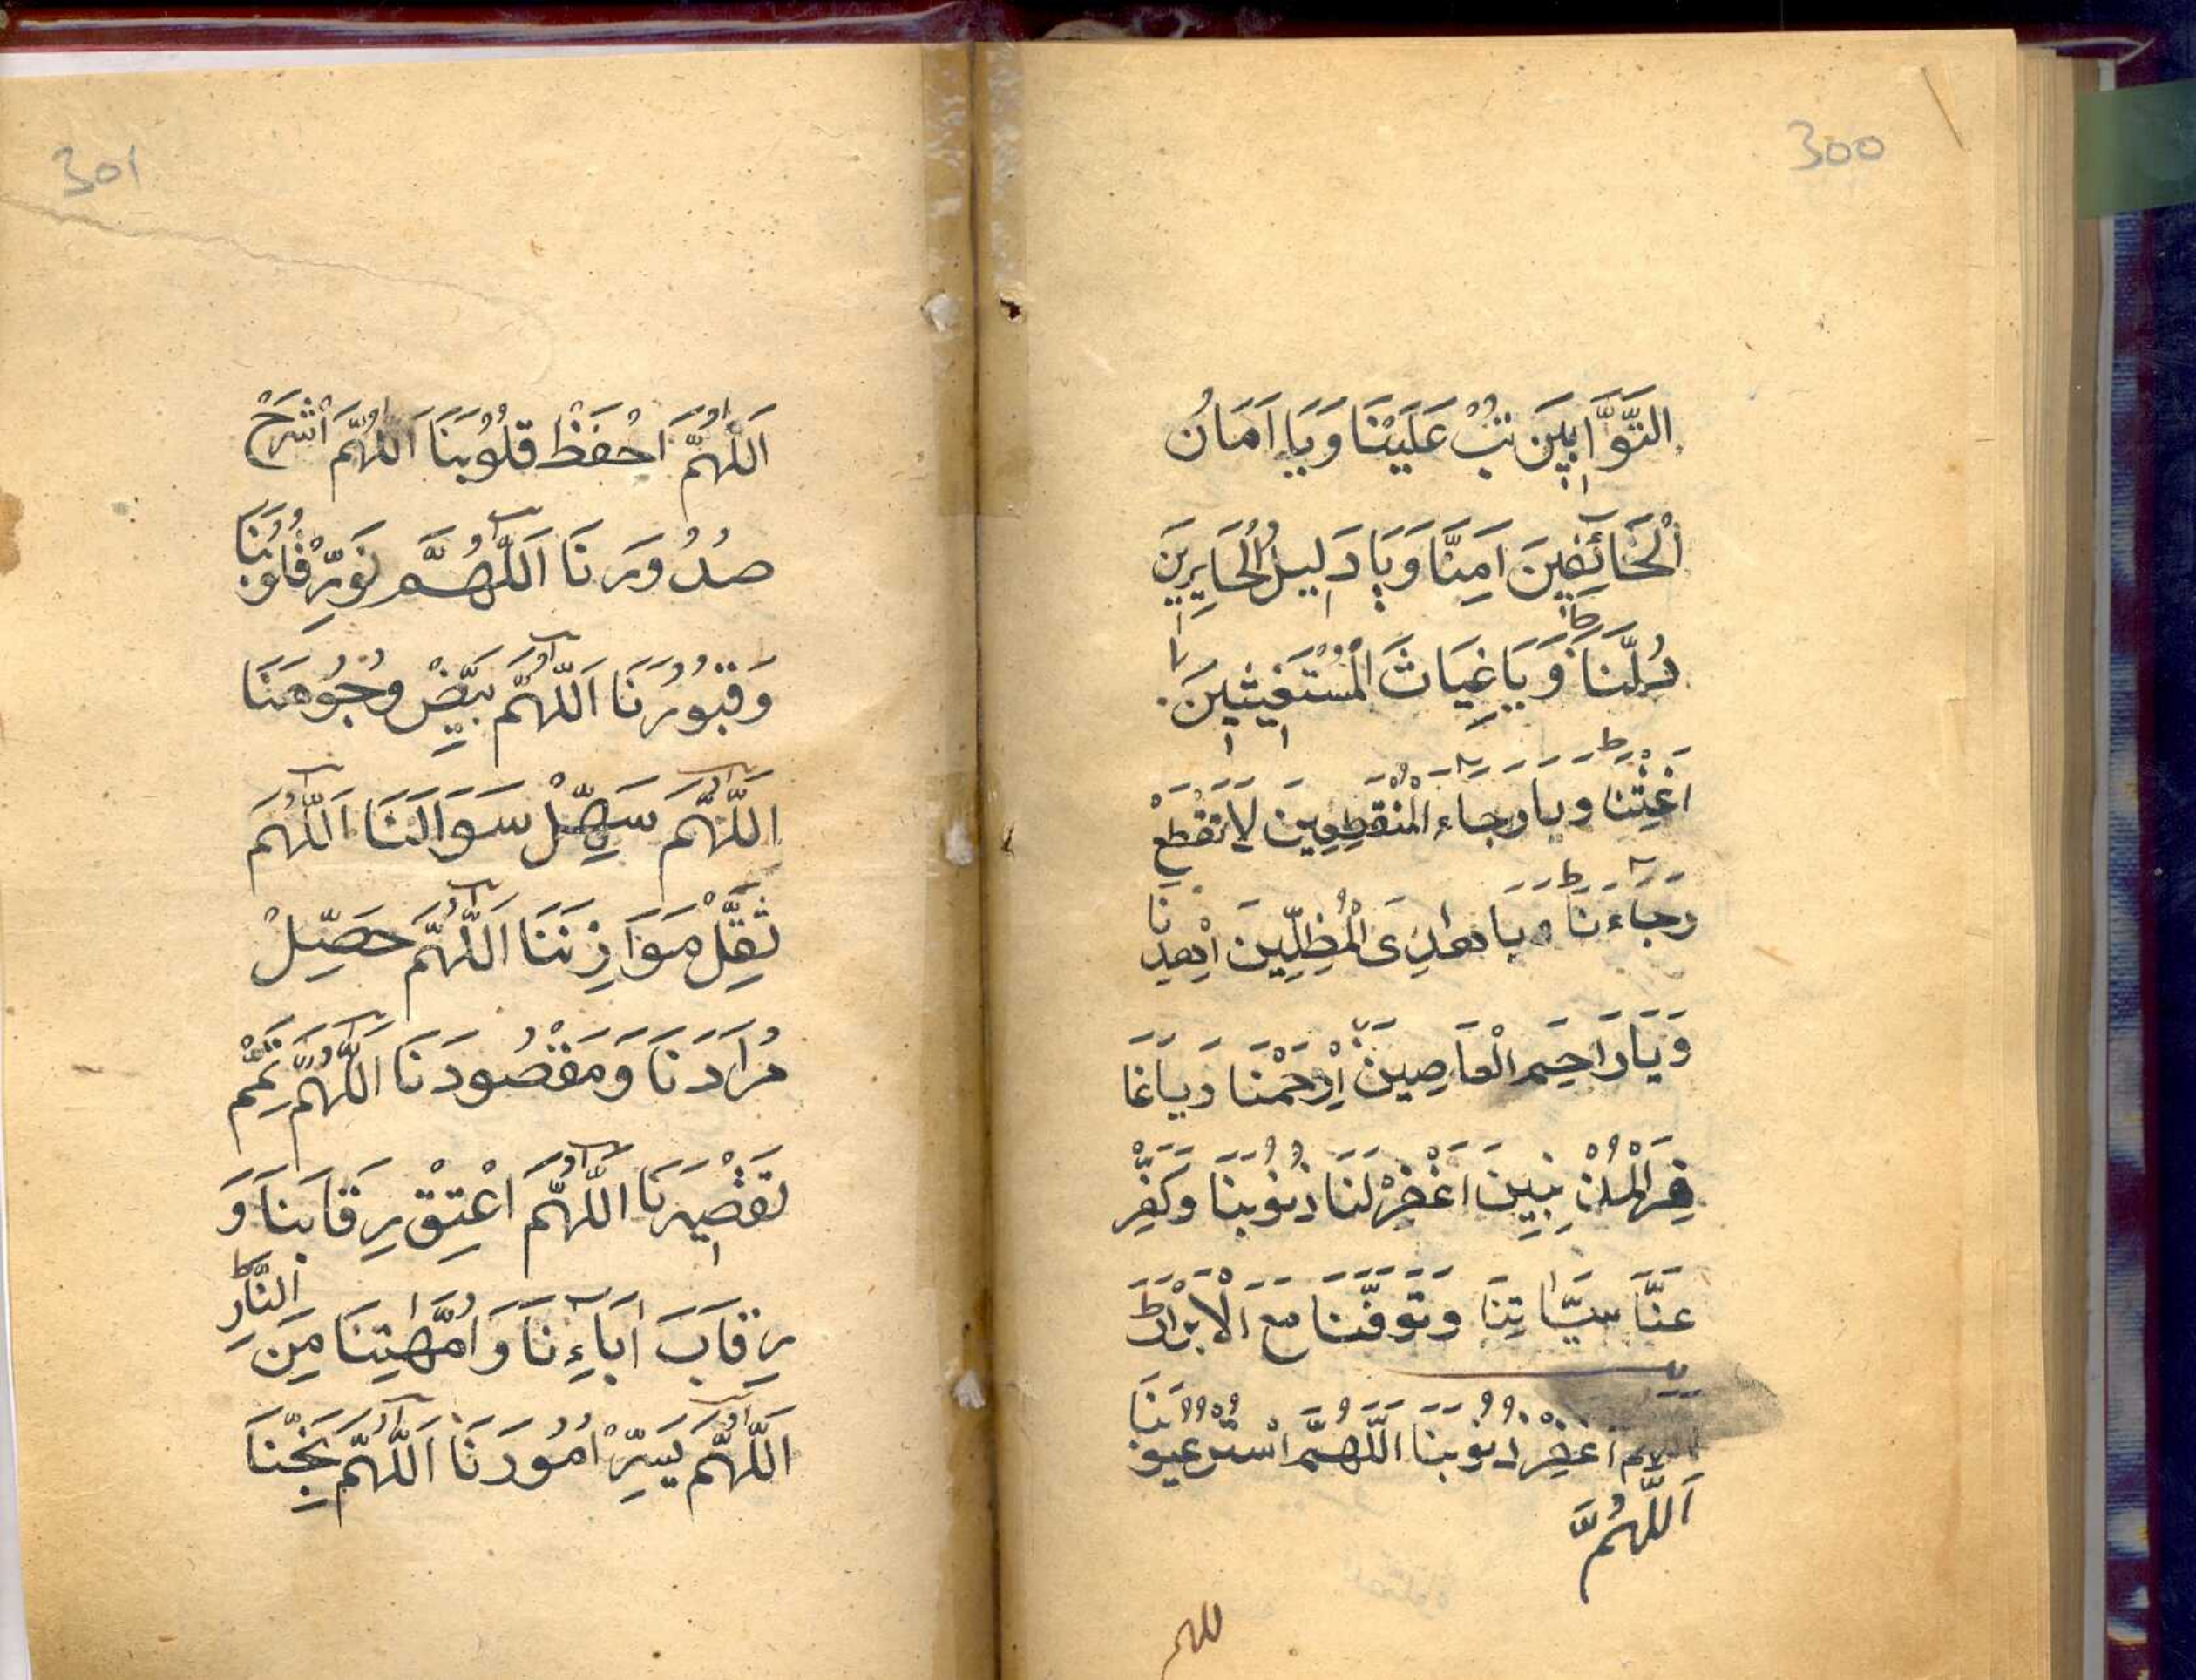 300
التَّوَّابِينَ تُبْ عَلَيْنَا وَيَا اَمَانُ
الْخَآئِفِينَ اَمِنَّا وَيَا دَلِيلُ الْحَايِرِينَ
دُلَّنَا وَيَا غِيَاثَ الْمُسْتَغِيثِينَ
اَغِثْنَا وَيَا رجَاءَ الْمُنْقَطِعِينَ لَا تَقْطَعْ
رجَاءَنَا وَيَا هَادِىَ الْمُظِلِّينَ اِهْدِنَا
وَيَا رَاحِمَ الْعَاصِينَ اِرْحَمْنَا وَيَا غَا
فِرَ الْمُذْنِبِينَ اَغْفِرْ لَنَا ذُنُوبَنَا وَكَفِّرْ
عَنَّا سَيِّاٰتِنَا وَتَوَفَّنَا مَعَ الْاَبْرَارِ
اللهم اغْفِرْ ذُنُوبَنَا اَللَّهُمَّ اسْتُرْ عُيُوبَنَا
اَللَّهُمَّ
للهم
301
اَللّٰهُمَّ احْفَظْ قُلُوْبَنَا اَللّٰهُمَّ اشْرَحْ
صُدُورَنَا اَللّٰهُمَّ نَوِّرْ قُلُوبَنَا
وَقُبُوْرَنَا اَللّٰهُمَّ بَيِّضْ وُجُوهَنَا
اَللّٰهُمَّ سَهِّلْ سَوَالَنَا اَللّٰهُمَّ
ثَقِّلْ مَوَازِنَنَا اَللّٰهُمَّ حَصِّلْ
مُرَادَنَا وَمَقْصُودَنَا اَللّٰهُمَّ تَمِّمْ
تَقْصِيْرَنَا اَللّٰهُمَّ اعْتِقْ رِقَابَنَا وَ
رِقَابَ اٰبَآءِنَا وَاُمَّهٰتِنَا مِنَ النَّارِ
اَللّٰهُمَّ يَسِّرْ اُمُورَنَا اَللّٰهُمَّ نَجِّنَا